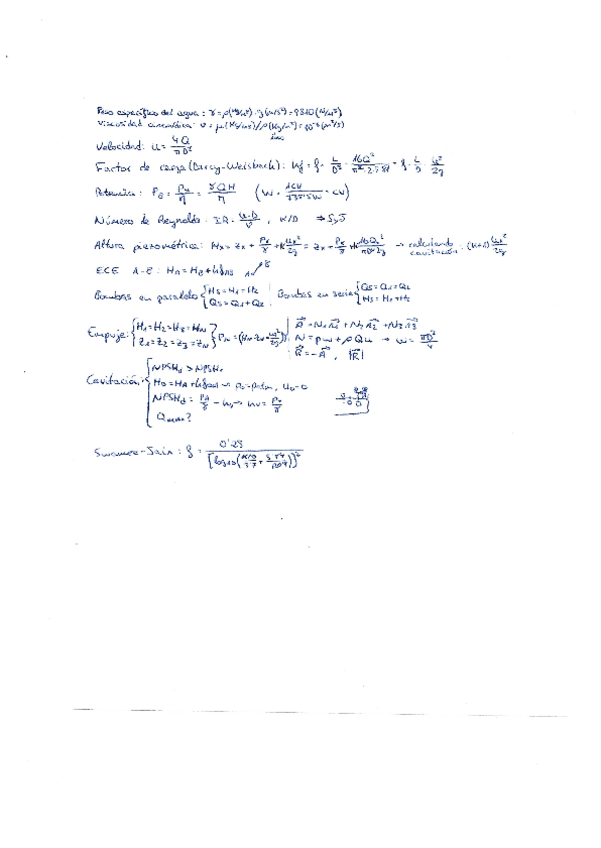 Peso específico del agua: γ = ρ(kg/m³)·g(m/s²) = 9810 (N/m³)
Viscosidad cinemática: ν = μ(kg/ms)/ρ(kg/m³) = 10⁻⁶ (m²/s)
Velocidad: u = 4Q/πD²
Factor de carga (Darcy-Weisbach): hf = f · L/D⁵ · 16Q²/π²·2·9'81 = f · L/D · u²/2g
Potencia: PB = Pu/η = γQH/η (W · 1CV/735'5W = CV)
Número de Reynolds: IR = u·D/ν, K/D → SyJ
Altura piezométrica: Hx = zx + Px/γ + K ux²/2g = zx + Px/γ + K 16Qx²/πD⁴2g → calculando cavitación: (K+1) ux²/2g
ECE A-B: HA = HB + hfAB
Bombas en paralelo { HS = H1 = H2 QS = Q1 + Q2 Bombas en serie { QS = Q1 = Q2 HS = H1 + H2
Empuje: { H1 = H2 = H3 = HN z1 = z2 = z3 = zN } PN = (HN - zN - u²/2g)γ
A = N1n1 + N2n2 + N3n3
N = pω + ρQu → ω = πD²/4
R = -A, |R|
Cavitación: { NPSHd > NPSHr
NPSHd = PA/γ - hv → hv = Pv/γ
Qmax?
Swamee-Jain: f = 0'25 / [log10(K/D/3'7 + 5'74/IR^0'9)]²